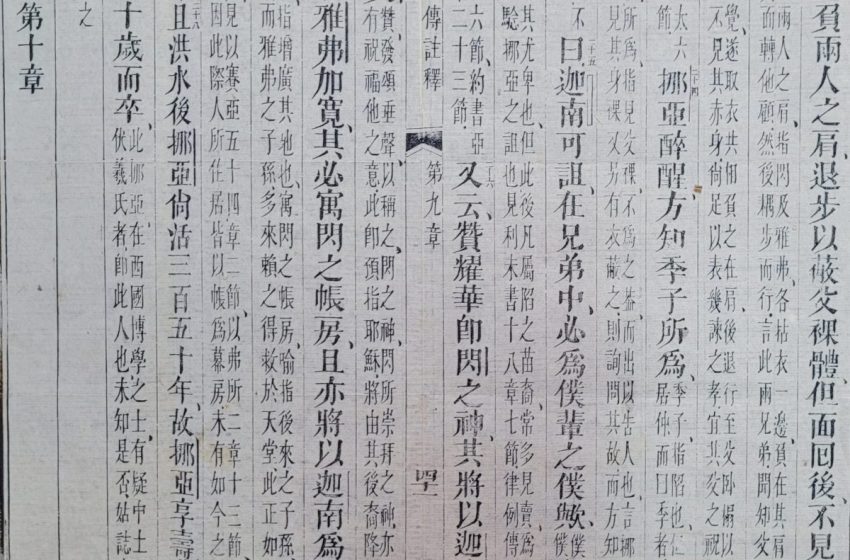 負兩人之肩退步以蔽父裸體但面回後不見
兩人之肩指閃及雅弗各拈衣一邊負在其肩
而轉他顧然後耦步而行言此兩兄弟聞知父
覺遂取衣共相負之在肩後退行至父臥榻以
不見其赤身尚足以表幾諫之孝宜其父之祝
太六
節
二十四挪亞醉醒方知季子所為
季子指㫼也
居仲而曰季者
所為指見父裸不為之蓋而出以告人也言挪
見其身裸又另有衣蔽之則詢問其故而方知
不
二十五曰迦南可詛在兄弟中必為僕輩之僕歟
僕
其尤卑也但此後凡屬㫼之苗裔常多見賣為
驗挪亞之詛也見利未書十八章七節律例傳
六節約書亞
二十三節
二十六又云贊耀華即閃之神其將以迦
傳註釋 第九章 四十二
贊發頌垂聲以稱之閃之神閃所崇拜之神亦
有祝福他之意此即預指耶穌將由其後裔降
雅弗加寬其必寓閃之帳房且亦將以迦南為
指增廣其地也寓閃之帳房喻指後來之子孫
而雅弗之子孫多來賴之得救於天堂此正如
見以賽亞五十四章二節以弗所二章十三節
因此際人所住居皆以帳為幕房未有如今之
二十八且洪水後挪亞尚活三百五十年故挪亞享壽
十歲而卒
此挪亞在西國博學之士有疑中土
伏羲氏者即此人也未知是否姑誌
之
第十章